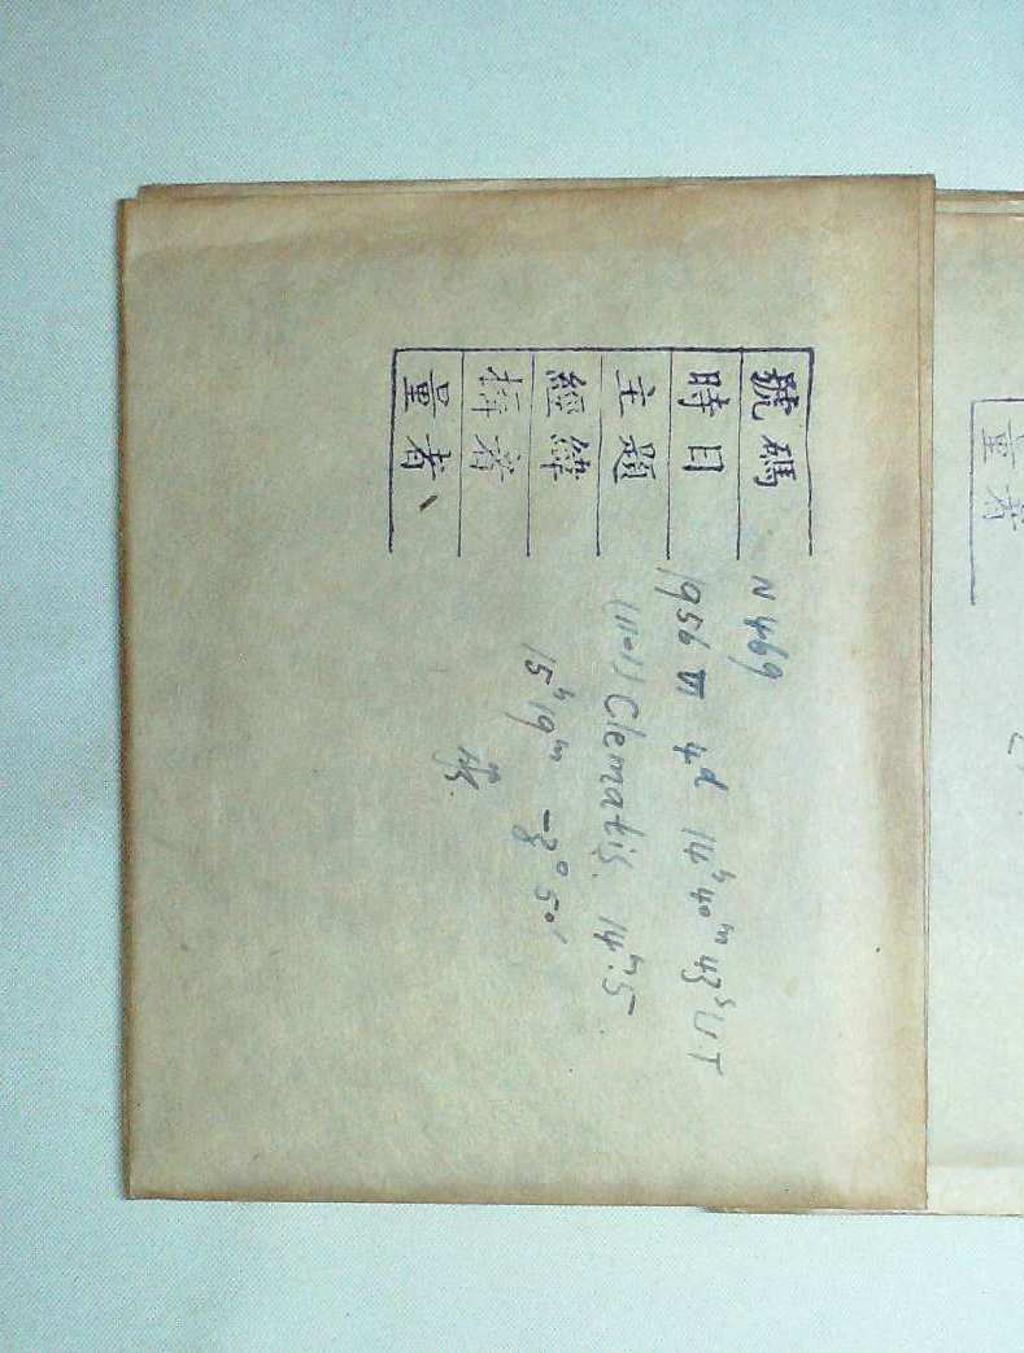 號碼 N469
時日 1956 VI 4ᵈ 14ʰ40ᵐ43ˢ UT
主題 (1101) Clematis. 14ᵐ.5
經緯 15ʰ19ᵐ -8°50′
攝者
量者
量者